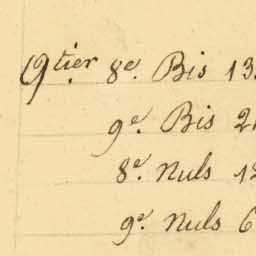 Qtier 8e. Bis 13
9e. Bis 2
8e. Nuls 12
9e. Nuls 6